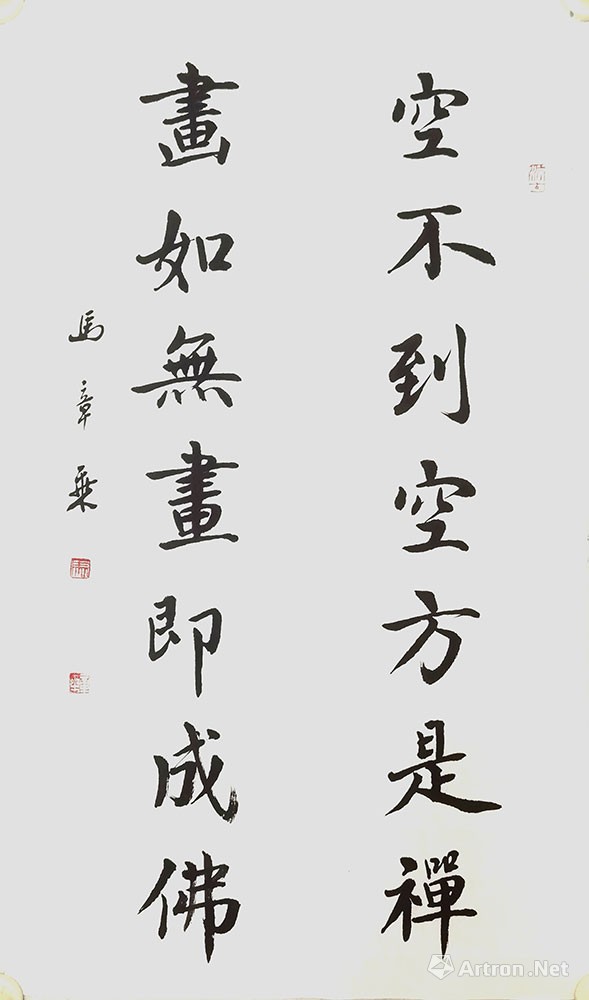 空不到空方是禪
畫如無畫即成佛
馬章乘
Artron.Net